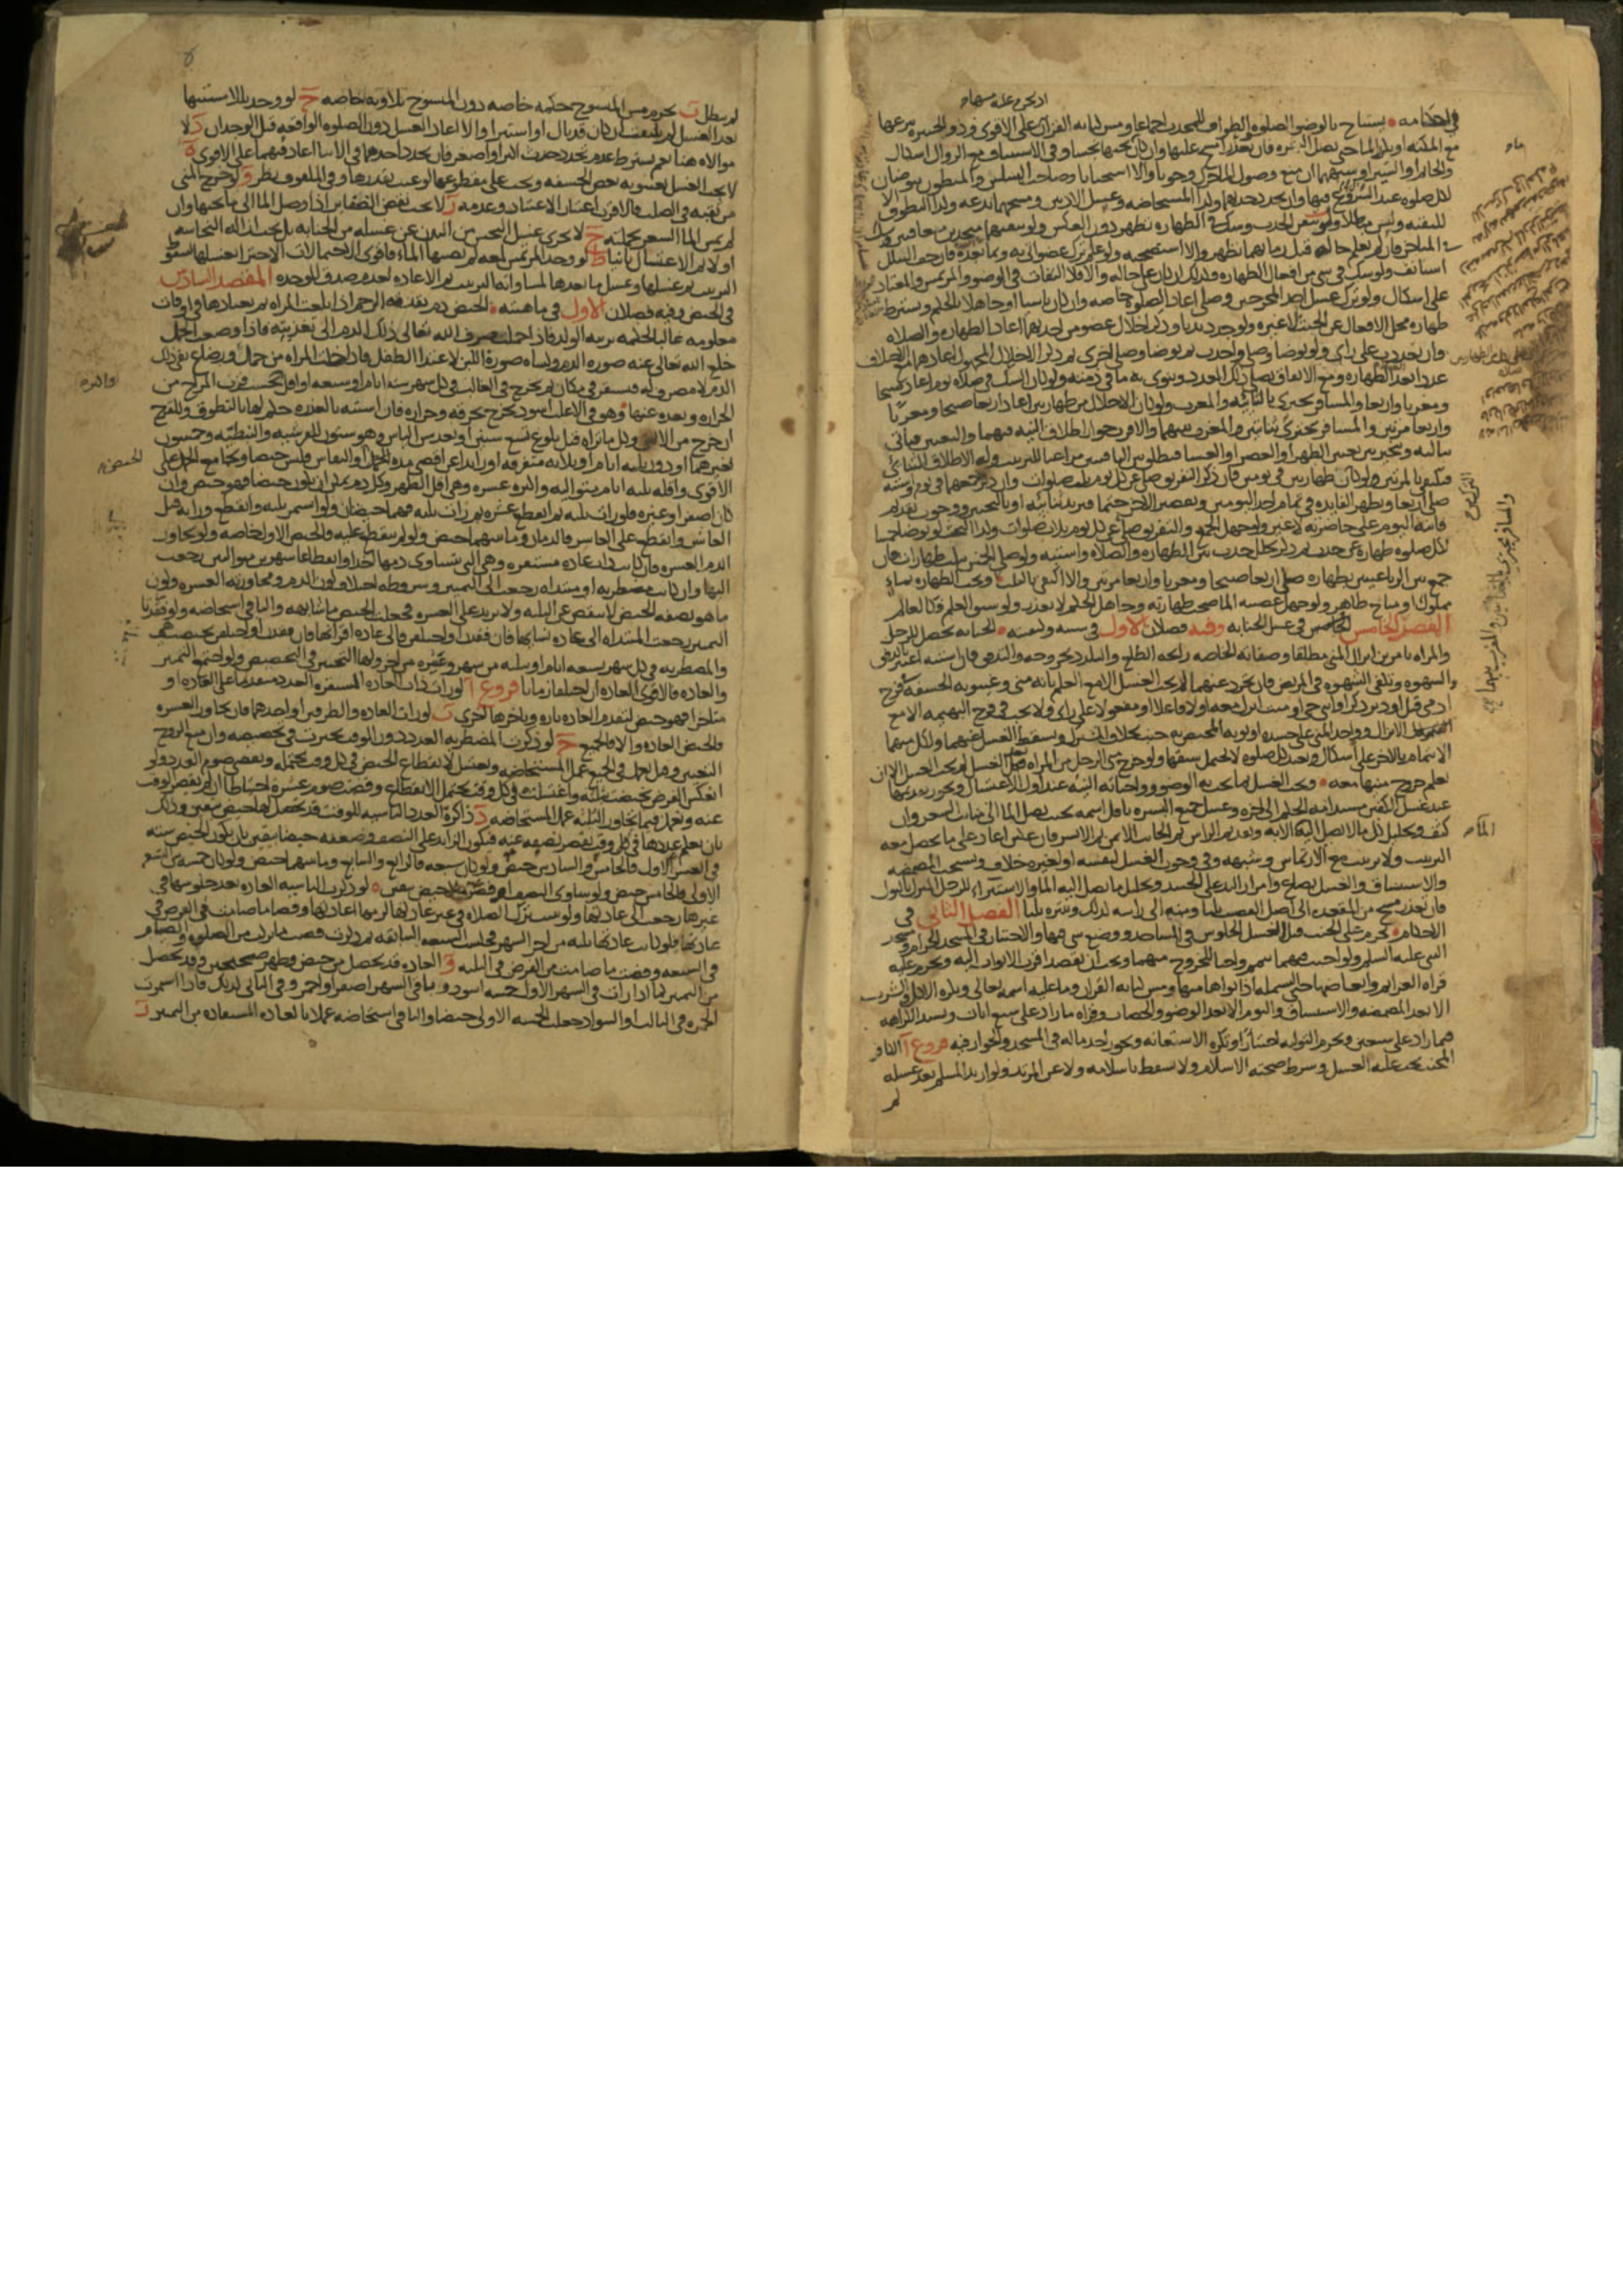 في احكامه يستباح بالوضوء الصلوة والطواف للمحدث اجماعا ومس كتابة القرآن على الاقوى وذو الجبيرة ينزعها
مع المكنة او يكرر الماء حتى يصل البشرة فان تعذر مسح عليها وان كان تحتها نجسا وفي الاستيناف مع الزوال اشكال
والخاتم او السير او شبههما ان منع وصول الماء حرك وجوبا والا استحبابا وصاحب السلس والمبطون يتوضان
لكل صلوه عند الشروع فيها وان تجدد حدثهما وكذا المستحاضه وغسل الاذنين ومسحهما بدعه وكذا التطوق الا
للتقيه وليس مبطلا ولو تيقن الحدث وشك في الطهاره تطهر دون العكس ولو تيقنهما متحدين متعاقبين وشك
في المتاخر فان لم يعلم حاله قبل زمانهما تطهر والا استصحبه ولو علم ترك عضو اتى به وبما بعده فان جف البلل
استانف ولو شك في شي من افعال الطهاره فكذلك ان كان على حاله والا فلا التفات في الوضوء والمرتمس والمعتاد
على اشكال ولو ترك غسل احد المخرجين وصلى اعاد الصلوة خاصه وان كان ناسيا او جاهلا بالحكم ويشترط
طهارة محل الافعال عن الخبث لا غيره ولو جدد ندبا وذكر اخلال عضو من احديهما اعاد الطهاره والصلاه
وان تعددت على راى ولو توضا وصلى واحدث ثم توضا وصلى اخرى ثم ذكر الاخلال المجهول اعادهما مع الاختلاف
عددا بعد الطهاره ومع الاتفاق يصلي ذلك العدد وينوي به ما في ذمته ولو كان الشك في صلاه يوم اعاد صبحا
ومغربا واربعا والمسافر يجتزى بالثنائيه والمغرب ولو كان الاخلال من طهارتين اعاد اربعا صبحا ومغربا
واربعا مرتين والمسافر يجتزى بثنائيتين والمغرب بينهما والاقرب جواز اطلاق النيه فيهما والتعيين فياتي
بثالثه ويتخير بين تعيين الظهر او العصر او العشا فيطلق بين الباقيتين مراعيا للترتيب وله الاطلاق الثنائي
فيكتفي بالمرتين ولو كان الترك من طهارتين في يومين فان ذكر التفريق صلى عن كل يوم ثلث صلوات وان ذكر جمعهما في يوم واشتبه
صلى اربعا وتظهر الفايده في تمام احد اليومين وتقصير الاخر حتما فيزيد ثنائيه او بالتخيير ووجوب تقديم
فائتة اليوم على حاضرته لا غير ولو جهل الجمع والتفريق صلى عن كل يوم ثلاث صلوات وكذا البحث لو توضا خمسا
لكل صلوه طهاره عن حدث ثم ذكر تخلل حدث بين الطهاره والصلاه واشتبه ولو صلى الخمس بثلث طهارات فان
جمع بين الرباعيتين بطهاره صلى اربعا صبحا ومغربا واربعا مرتين والا اكتفى بالثلث وتجب الطهاره بماء
مملوك او مباح طاهر ولو جهل غصبيه الماء صحت طهارته وجاهل الحكم لا يعذر ولو سبق العلم فكالعالم
المقصد الخامس في غسل الجنابه وفيه فصلان الاول في سببه وكيفيته الجنابه تحصل للرجل
والمراه بامرين انزال المني مطلقا وصفاته الخاصه رايحه الطلع والتلذذ بخروجه والتدفق فان اشتبه اعتبر بالدفق
والشهوه وتكفي الشهوه في المريض فان تجرد عنهما لم يجب الغسل الا مع العلم بانه مني وغيبوبه الحشفه في فرج
ادمي قبل او دبر ذكر او انثى حي او ميت انزل معه اولا فاعلا او مفعولا على راى ولا يجب في فرج البهيمه الا مع
الانزال وواجد المني على جسده او ثوبه المختص به جنب بخلاف المشترك ويسقط الغسل عنهما ولكل منهما
الايتمام بالاخر على اشكال ويعيد كل صلوه لا يحتمل سبقها ولو خرج مني الرجل من المراه بعد الغسل لم يجب الغسل الا ان
تعلم خروج منيها معه ويجب الغسل بما يجب به الوضوء وواجباته النيه عند اول الاغتسال ويجوز تقديمها
عند غسل الكفين مستدامه الحكم الى اخره وغسل جميع البشره باقل اسمه بحيث يصل الماء الى منابت الشعر وان
كثف وتخليل كل ما لا يصل اليه الماء الا به وتقديم الراس ثم الجانب الايمن ثم الايسر فان عكس اعاد على ما يحصل معه
الترتيب ولا ترتيب مع الارتماس وشبهه وفي وجوب الغسل لنفسه او لغيره خلاف ويستحب المضمضه
والاستنشاق والغسل بصاع وامرار اليد على الجسد وتخليل ما يصل اليه الماء والاستبراء للرجل المنزل بالبول
فان تعذر مسح من المقعده الى اصل القضيب ثلثا ومنه الى راسه كذلك وينتره ثلثا الفصل الثاني في
الاحكام يحرم على الجنب قبل الغسل الجلوس في المساجد ووضع شي فيها والاجتياز في المسجد الحرام ومسجد
النبي عليه السلم ولو اجنب فيهما تيمم واجبا للخروج منهما ويجب ان يقصد اقرب الابواب اليه ويحرم عليه
قراه العزايم وابعاضها حتى البسمله اذا نواها منها ومس كتابه القران وما عليه اسمه تعالى ويكره الاكل والشرب
الا بعد المضمضه والاستنشاق والنوم الا بعد الوضوء والخضاب وقراه ما زاد على سبع ايات وتشتد الكراهه
فيما زاد على سبعين وتحرم التوليه اختيارا وتكره الاستعانه ويجوز اخذ ماله في المسجد والجواز فيه فروع ا الكافر
المجنب يجب عليه الغسل وشرط صحته الاسلام ولا يسقط باسلامه ولا عن المرتد ولو ارتد المسلم بعد غسله
لم
لم يبطل ب يحرم مس المنسوخ حكمه خاصه دون المنسوخ تلاوته خاصه ج لو وجد بللا مشتبها
بعد الغسل لم يلتفت ان كان قد بال او استبرا والا اعاد الغسل دون الصلوه الواقعه قبل الوجدان د لا
موالاه هنا نعم يشترط عدم تجدد حدث اكبر او اصغر فان تجدد احدهما في الاثناء اعاد فيهما على الاقوى ه
لا يجب الغسل بغيبوبه بعض الحشفه ويجب على مقطوعها لو غيب بقدرها وفي الملفوف نظر و لو خرج المني
من ثقبه في الصلب فالاقرب اعتبار الاعتياد وعدمه ز لا يجب نقض الضفاير اذا وصل الماء الى ما تحتها وان
لم يمس الماء الشعر بجملته ح لا يجزى غسل النجس من البدن عن غسله من الجنابه بل يجب ازاله النجاسه
اولا ثم الاغتسال ثانيا ط لو وجد المرتمس لمعه لم يصبها الماء فاقوى الاحتمالات الاجتزاء بغسلها لسقوط
الترتيب ثم غسلها وغسل ما بعدها لمساواته الترتيب ثم الاعاده لعدم صدق الوحده المقصد السادس
في الحيض وفيه فصلان الاول في ماهيته الحيض دم يقذفه الرحم اذا بلغت المراه ثم يعتادها في اوقات
معلومه غالبا لحكمه تربيه الولد فاذا حملت صرف الله تعالى ذلك الدم الى تغذيته فاذا وضعت الحمل
خلع الله تعالى عنه صوره الدم وكساه صورة اللبن لاغتذاء الطفل فاذا خلت المراه من حمل ورضاع بقي ذلك
الدم لا مصرف له فيستقر في مكان ثم يخرج في الغالب في كل شهر سته ايام او سبعه او اقل بحسب قرب المزاج من
الحراره وبعده عنها وهو في الاغلب اسود يخرج بحرقه وحراره فان اشتبه بالعذره حكم لها بالتطوق وللقرح
ان خرج من الايمن وكل ما تراه قبل بلوغ تسع سنين او بعد سن الياس وهو ستون للقرشيه والنبطيه وخمسون
لغيرهما او دون ثلثه ايام او ثلاثه متفرقه او زايدا عن اقصى مده الحيض او النفاس فليس حيضا ويجامع الحمل على
الاقوى واقله ثلثه ايام متواليه واكثره عشره وهي اقل الطهر وكل دم يمكن ان يكون حيضا فهو حيض وان
كان اصفر او غيره فلو رات ثلثه ثم انقطع عشره ثم رات ثلثه فهما حيضان ولو استمر ثلثه وانقطع وراته قبل
العاشر وانقطع على العاشر فالدمان وما بينهما حيض ولو لم ينقطع عليه فالحيض الاول خاصه ولو تجاوز
الدم العشره فان كانت ذات عاده مستقره وهي التي يتساوى دمها اخذا وانقطاعا شهرين متواليين رجعت
اليها وان كانت مضطربه او مبتداه رجعت الى التمييز وشروطه اختلاف لون الدم ومجاوزته العشره وكون
ما هو بصفه الحيض لا ينقص عن الثلثه ولا يزيد على العشره فجعلت الحيض ما شابهه والباقي استحاضه ولو فقدتا
التمييز رجعت المبتداه الى عاده نسائها فان فقدن او اختلفن فالى عاده اقرانها فان فقدن او اختلفن تحيضت هي
والمضطربه في كل شهر بسبعه ايام او بثلثه من شهر وعشره من اخر ولها التخيير في التخصيص ولو اجتمع التمييز
والعاده فالاقوى العاده ان اختلفا زمانا فروع ا لو رات ذات العاده المستقره العدد متقدما على العاده او
متاخرا فهو حيض لتقدم العاده تاره وتاخرها اخرى ب لو رات العاده والطرفين او احدهما فان تجاوز العشره
فالحيض العاده والا فالجميع ج لو ذكرت المضطربه العدد دون الوقت تخيرت في تخصيصه وان منع الزوج
التعيين وقيل تعمل في الجميع عمل المستحاضه وتغتسل لانقطاع الحيض في كل وقت يحتمله وتقضي صوم العدد ولو
انعكس الفرض تحيضت بثلثه واغتسلت في كل وقت يحتمل الانقطاع وقضت صوم عشره احتياطا ان لم يقصر الوقت
عنه وتعمل فيما تجاوز الثلثه عمل المستحاضه د ذاكرة العدد الناسيه للوقت قد يحصل لها حيض بيقين وذلك
بان تعلم عددها في كل وقت يقصر نصفه عنه فيكون الزايد على النصف وضعفه حيضا بيقين بان يكون الحيض سته
في العشر الاول فالخامس والسادس حيض ولو كان سبعه فالرابع والسابع وما بينهما حيض ولو كان خمسه من التسع
الاولى فالخامس حيض ولو ساوى النصف او قصر فلا حيض بيقين ه لو ذكرت الناسيه العاده بعد جلوسها في
غيرها رجعت الى عادتها ولو تبينت ترك الصلاه في غير عادتها لزمها اعادتها وقضا ما صامت في الفرض في
عادتها فلو كانت عادتها ثلثه من اخر الشهر فجلست السبعه السابقه ثم ذكرت قضت ما تركت من الصلوه والصيام
في السبعه وقضت ما صامت من الفرض في الثلثه و العاده قد تحصل من حيض وطهر صحيحين وقد تحصل
من التمييز كما اذا رات في الشهر الاول خمسه اسود وباقي الشهر اصفر او احمر وفي الثاني كذلك فاذا استمرت
الحمره في الثالث او السواد جعلت الخمسه الاولى حيضا والباقي استحاضه عملا بالعاده المستفاده من التمييز ز